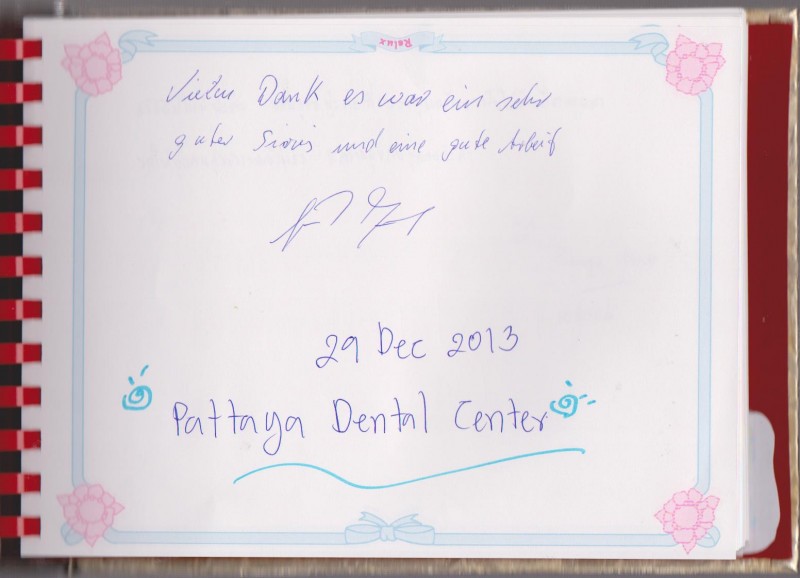 Relax
Vielen Dank es war ein sehr
guter und eine gute Arbeit
29 Dec 2013
Pattaya Dental Center